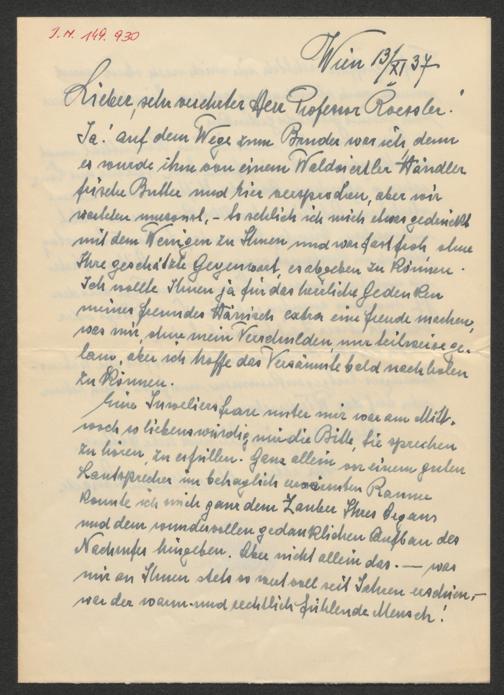 I.N. 149.930
Wien 13/XI 37
Lieber, sehr verehrter Herr Professor Roessler!
Ja! auf dem Wege zum Bruder war ich, denn
es wurde ihm von einem Waldviertler Händler
frische Butter und Eier versprochen, aber wir
warteten umsonst, – so schlich ich mich etwas gedrückt
mit dem Wenigen zu Ihnen und war fast froh, ohne
Ihre geschätzte Gegenwart, es abgeben zu können.
Ich wollte Ihnen ja für das herrliche Gedenken
meines Freundes Hänisch extra eine Freude machen,
was mir, ohne mein Verschulden, nur teilweise ge-
lang, aber ich hoffe das Versäumte bald nachholen
zu können.
Eine Juweliersfrau unter mir war am Mitt-
woch so liebenswürdig mir die Bitte, Sie sprechen
zu hören, zu erfüllen. Ganz allein vor einem guten
Lautsprecher im behaglich erwärmten Raume
konnte ich mich ganz dem Zauber Ihres Organs
und dem wundervollen gedanklichen Aufbau des
Nachrufes hingeben. Aber nicht allein das. — was
mir an Ihnen stets so wertvoll seit Jahren erschien, –
war der warm- und rechtlich fühlende Mensch!